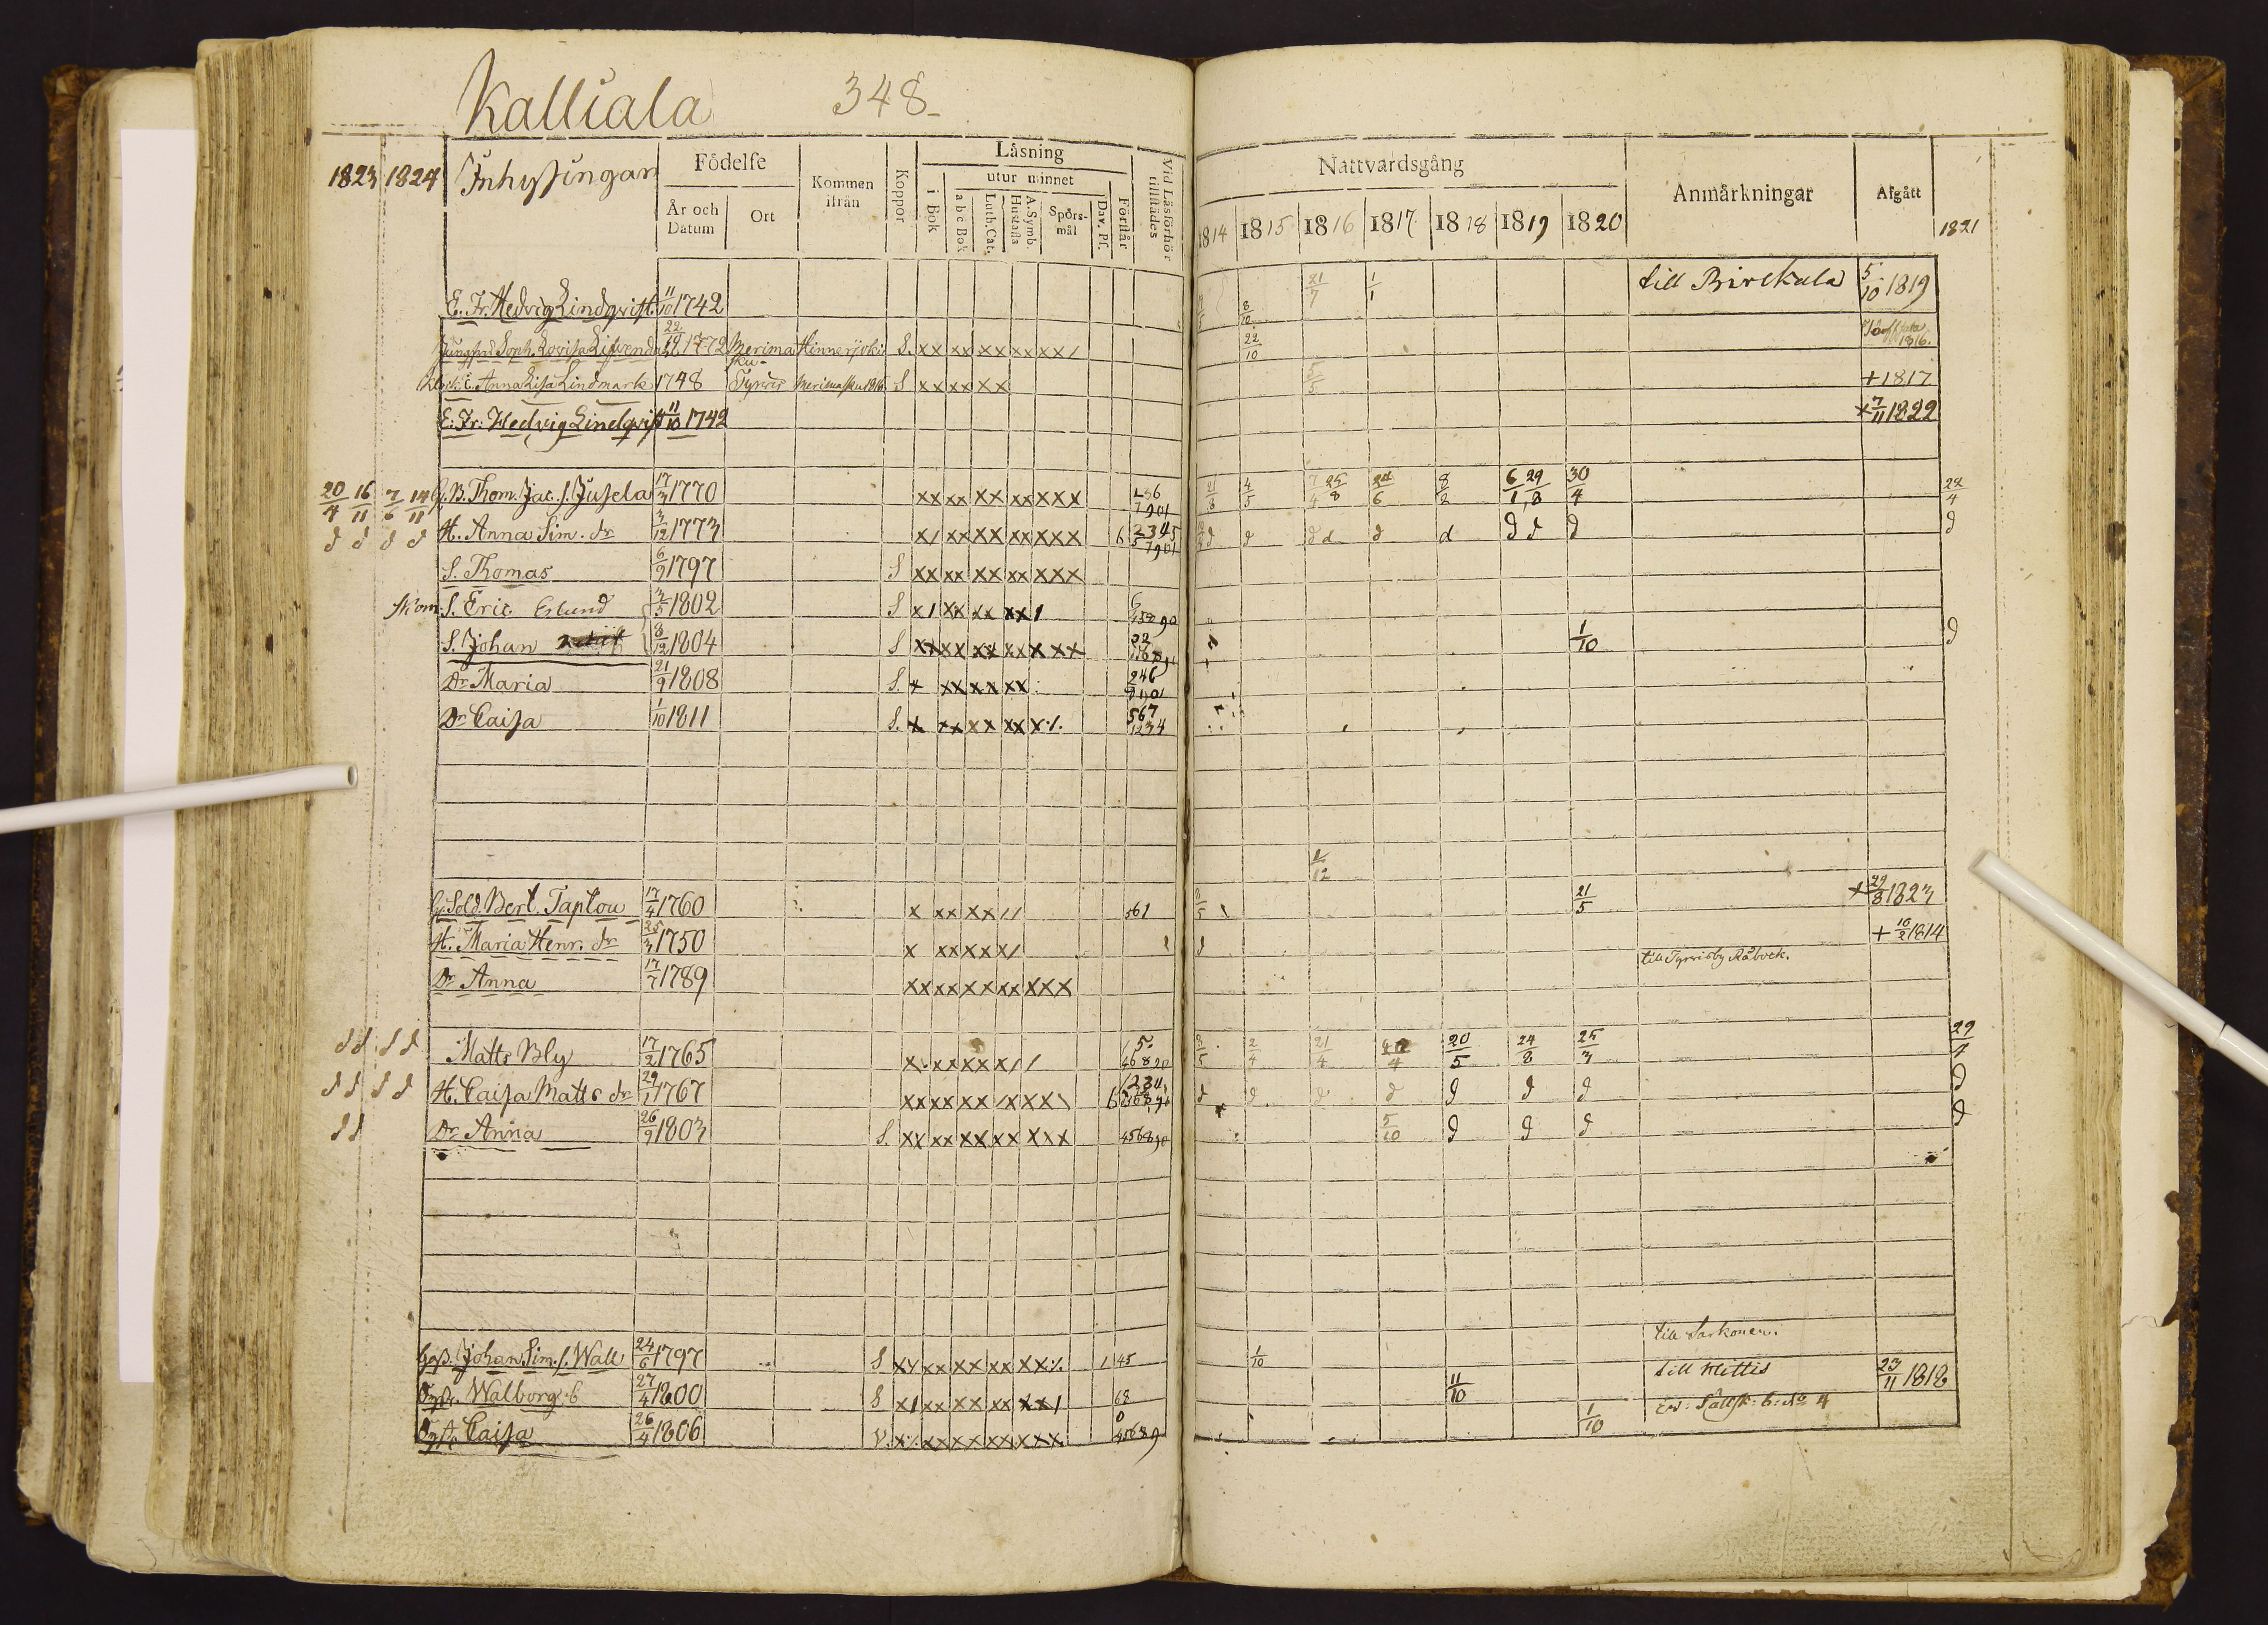 Kalliala 348
1823 1824 Inhysingar Födelse År och Datum Ort Kommen ifrån Koppor Läsning i Bok utur minnet abc Bok Luth. Cat. A. Symb. Hustafla Spörsmål Dav. Ps. Förstår Vid Läsförhör tillstädes
Nattvardsgång 1814 1815 1816 1817 1818 1819 1820 Anmärkningar Afgått 1821
E. Fr. Hedvig Lindqvist 11/10 1742 8/10 21/7 1/1 till Birckala 5/10 1819
Jungfru Soph. Lovisa 1772 Merimasku Hinnerjoki S. xx xx xx xx xx/ 22/10 1816.
Anna Lisa Lindmark 1748 Tyrvis Merimasku 1816 S xx xx xx 5/5 + 1817
E. Fr. Hedvig Lindqvist 11/10 1742 + 7/11 1822
20/4 16/11 7/6 14/11 G. B. Thom. Jac. s. Jusela 17/3 1770 xx xx xx xx xxx 21/8 4/5 7/4 25/8 24/6 8/2 6/1 29/8 30/4 22/4
d d d d H. Anna Sim. dr 3/12 1773 x/ xx xx xx xxx 6 d d d d d d d d d d
S. Thomas 6/9 1797 S xx xx xx xx xxx
S. Eric Eslund 3/5 1802 S x/ xx xx xx /
S. Johan 8/12 1804 S xx xx xx xx xxx 1/10 d
Dr Maria 21/9 1808 S. x xx xx xx 246
Dr Caisa 1/10 1811 S. x xx xx xx x./. 567 1234
1/12
G. Sold. Bert. Taplou 17/4 1760 x xx xx // 561 21/5 + 29/8 1823
H. Maria Henr. dr 25/3 1750 x xx xx / d + 10/2 1814
Dr Anna 17/7 1789 xx xx xx xx xxx till Tyrvisby Råbock.
d d d d Matts Bly 17/2 1765 x xx xx // 2/4 21/4 20/5 24/8 25/3 29/4
d d d d H. Caisa Matts dr 29/1 1767 xx xx xx /x xx d d d d d d d d
d d Dr Anna 26/9 1803 S. xx xx xx xx xxx 456890 5/10 d d d d
till Sarkonen.
Johan Sim. s. Wall 24/6 1797 S xx xx xx xx xx./. 1 45 1/10
Walborg 27/4 1800 S x/ xx xx xx xx/ 68 11/10 till Mettis 23/11 1818
Caisa 26/4 1806 V. x/. xx xx xx xxx 45689 1/10